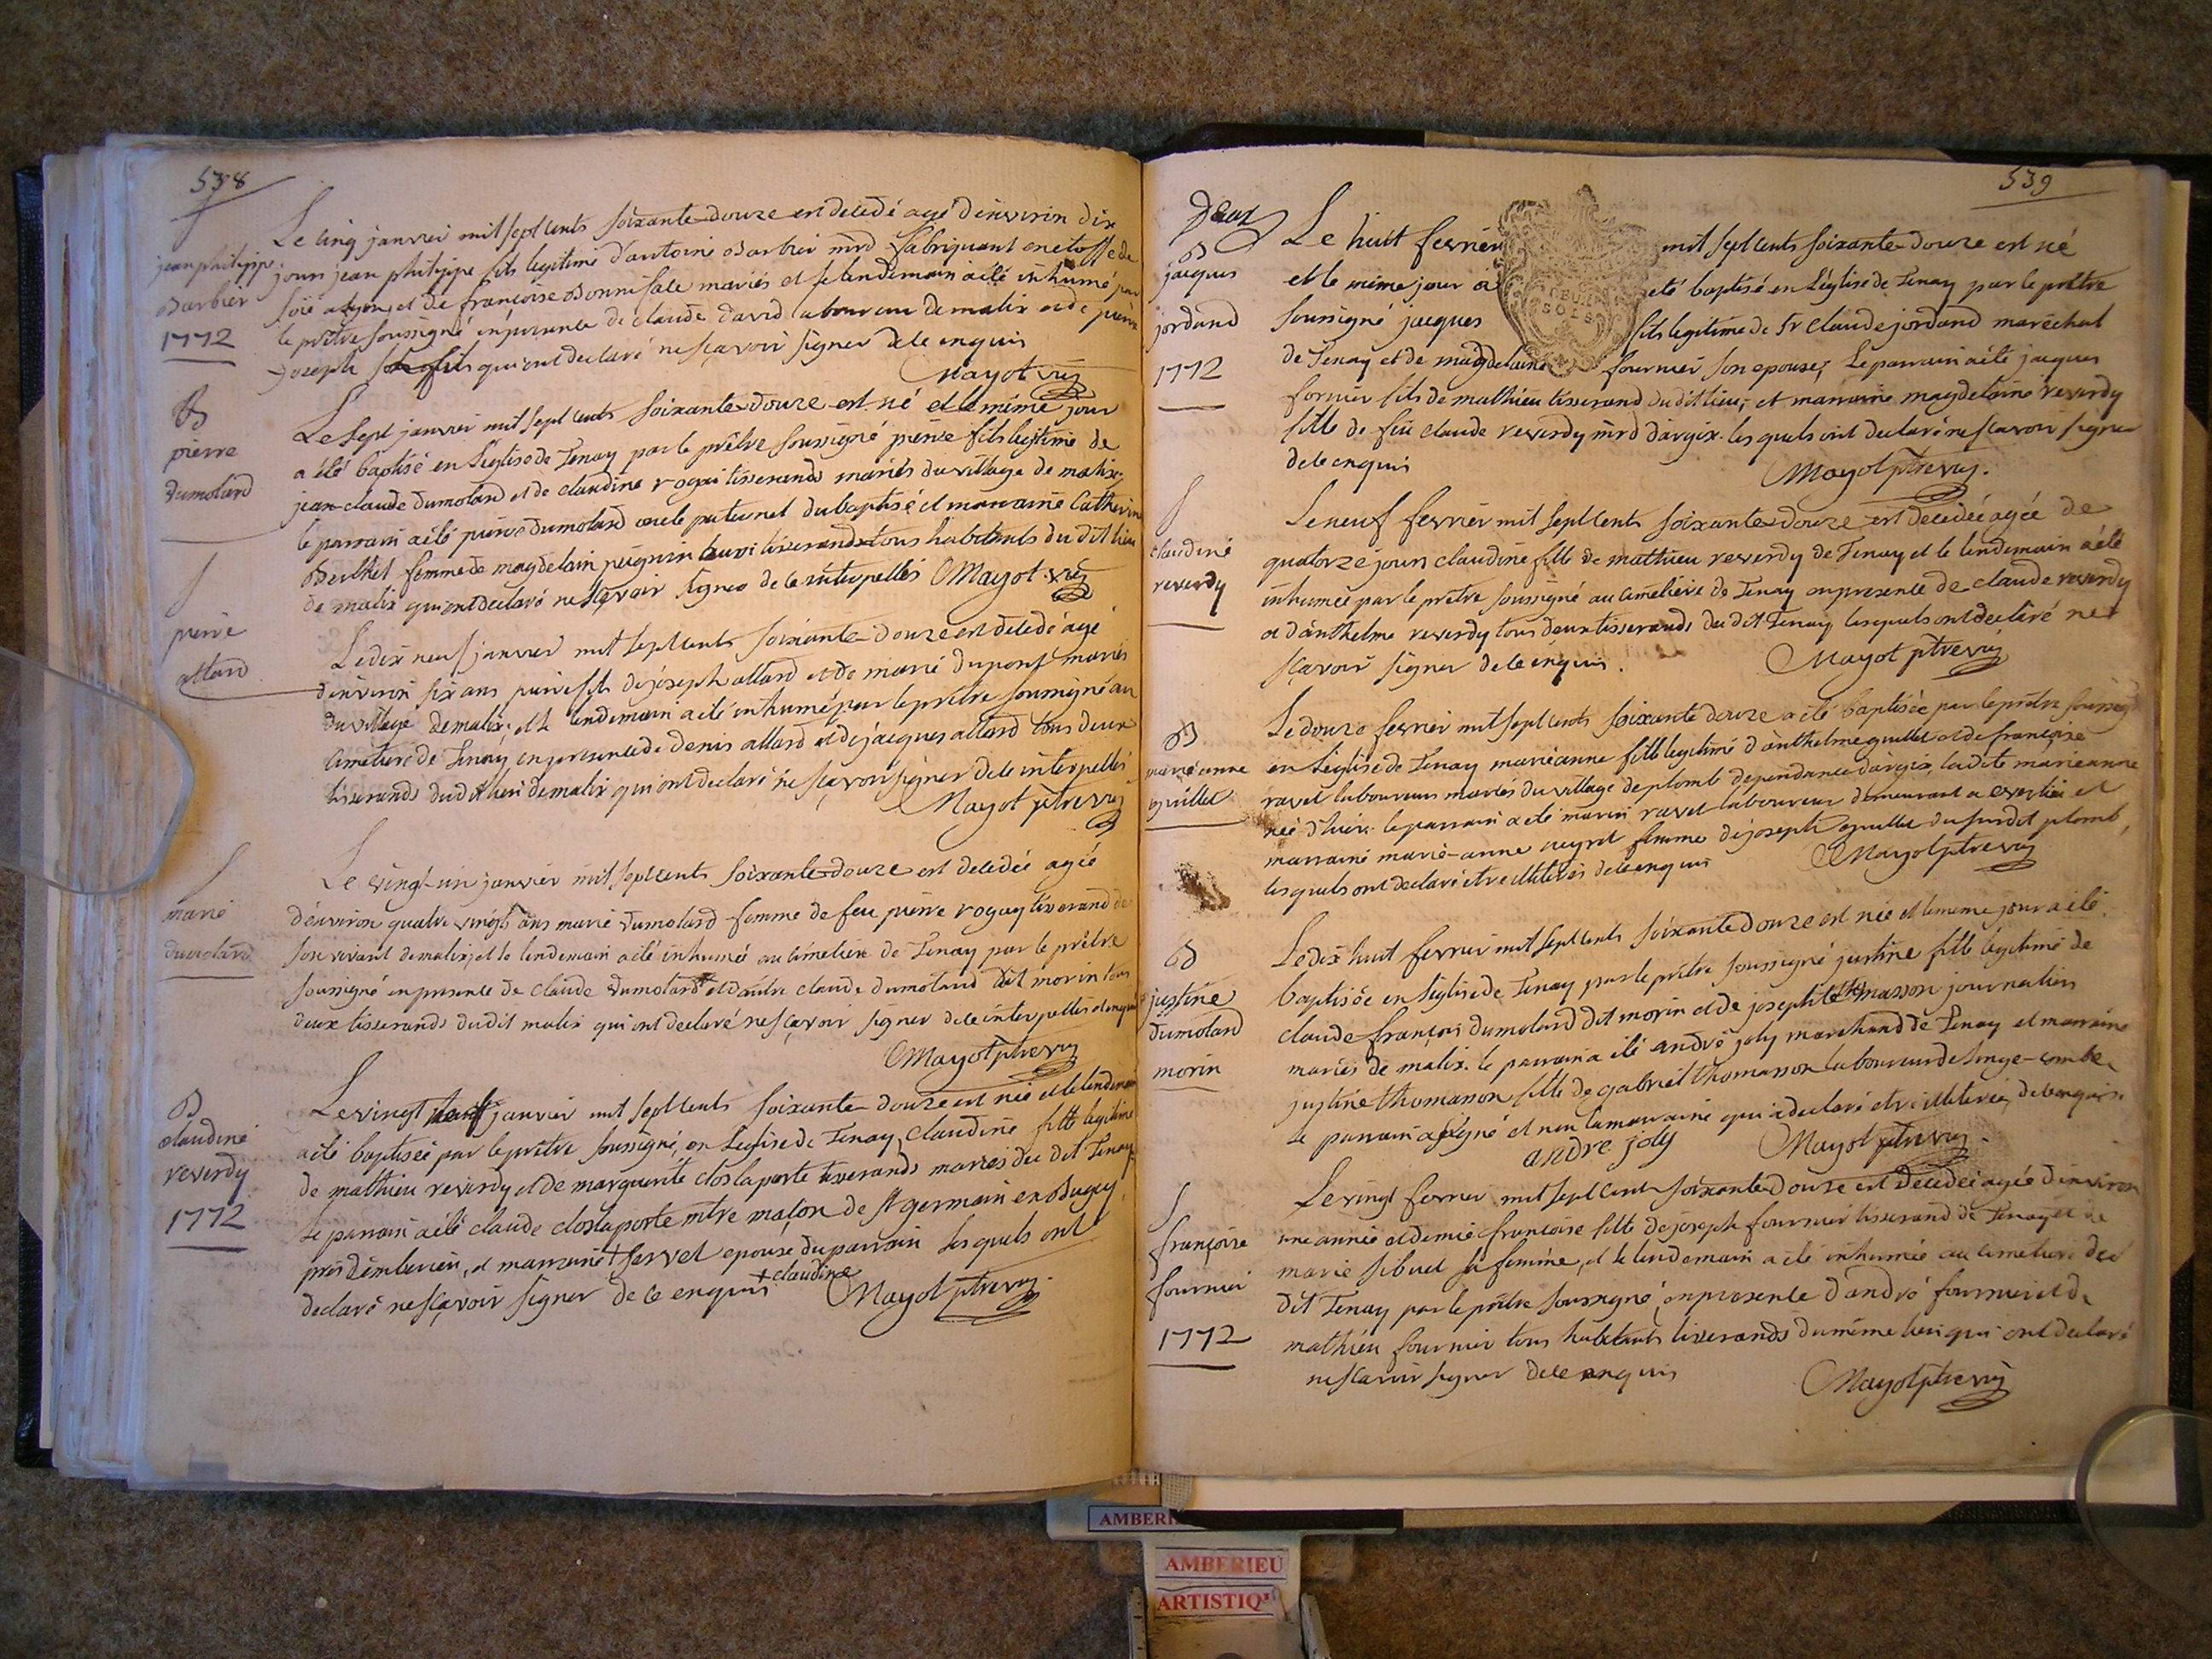 538
Le cinq janvier mil sept cents soixante-douze est décédé agé d'environ dix
jours jean philippe fils legitime d'antoine Barbier mrd fabriquant en étoffe de
soie a lyon, et de françoise Bonnefale mariés et le lendemain a été inhumé par
le prêtre soussigné en presence de claude david laboureur de malix et de pierre
joseph son fils qui ont declaré ne sçavoir signer de ce enquis
Mayot vic
jean philippe
Barbier
1772
Le Sept janvier mil sept cents soixante-douze est né et le même jour
a été baptisé en l'église de Tenay par le prêtre soussigné pierre fils legitime de
jean-claude Dumolard et de claudine roguy tisserands mariés du village de malix;
le parrain a été pierre Dumolard oncle paternel du baptisé et marraine Catherine
Berthet femme de magdelain peignin tisserands tous habitants du dit lieu
de malix qui ont declaré ne sçavoir signer de ce interpellés Mayot vic
B
pierre
dumolard
Le dix neuf janvier mil sept cents soixante-douze est décédé agé
d'environ six ans pierre fils de joseph allard et de marie dupont mariés
du village de malix; et le lendemain a été inhumé par le prêtre soussigné au
cimetiere de Tenay en presence de denis allard et de jacques allard tous deux
tisserands du dit lieu de malix qui ont declaré ne sçavoir signer de ce interpellés
Mayot ptre vic
pierre
allard
Le vingt-un janvier mil sept cents soixante-douze est décédée agée
d'environ quatre vingts ans marie dumolard femme de feu pierre roguy tisserand de
son vivant de malix; et le lendemain a été inhumée au cimetiere de Tenay par le prêtre
soussigné en presence de claude dumolard et d'autre claude dumolard dit morin tous
deux tisserands du dit malix qui ont declaré ne sçavoir signer de ce interpellés et enquis
Mayot ptre vic
marie
dumolard
Le vingt janvier mil sept cents soixante-douze est née et le lendemain
a été baptisée par le prêtre soussigné, en l'église de Tenay, claudine fille legitime
de mathieu reverdy et de marguerite closlaporte tisserands mariés du dit Tenay
le parrain a été claude closlaporte mtre maçon de st germain en Bugey
près d'emberieu, et marraine + servet epouse du parrain lesquels ont
declaré ne sçavoir signer de ce enquis + claudine Mayot ptre vic
B
claudine
reverdy
1772
539
deux
Le huit fevrier mil sept cents soixante-douze est né
et le même jour a été baptisé en l'église de Tenay par le prêtre
soussigné jacques fils legitime de Sr claude jordand maréchal
de Tenay et de magdelaine fournier son epouse; le parrain a été jacques
fornier fils de mathieu tisserand du dit lieu; et marraine magdelaine reverdy
fille de feu claude reverdy mrd d'argix. lesquels ont declaré ne sçavoir signer
de ce enquis
Mayot ptre vic.
B
jacques
jordand
1772
Le neuf fevrier mil sept cents soixante-douze est décédée agée de
quatorze jours claudine fille de mathieu reverdy de Tenay et le lendemain a été
inhumée par le prêtre soussigné au cimetiere de Tenay en presence de claude reverdy
et d'anthelme reverdy tous deux tisserands du dit Tenay lesquels ont declaré ne
sçavoir signer de ce enquis.
Mayot ptre vic
claudine
reverdy
Le douze fevrier mil sept cents soixante douze a été baptisée par le prêtre soussigné
en l'église de Tenay marieanne fille legitime d'anthelme quillet et de françoise
ravet laboureurs mariés du village de plomb dependance d'argix, ladite marieanne
née d'hier. le parrain a été marin ravet laboureur demeurant a et
marraine marie-anne femme de joseph quillet du susdit plomb,
lesquels ont declaré etre illiterés de ce enquis
Mayot ptre vic
B
marie anne
quillet
Le dix huit fevrier mil sept cents soixante douze est née et le meme jour a été
baptisée en l'église de Tenay par le prêtre soussigné justine fille légitime de
claude françois dumolard dit morin et de josephte thomasson journaliers
mariés de malix. le parrain a été andré joly marchand de Tenay et marraine
justine thomasson fille de gabriel thomasson laboureur de longe-combe
le parrain a signé et non la marraine qui a declaré etre illiterée, de ce enquise.
andre joly
Mayot ptre vic.
B
justine
dumolard
morin
Le vingt fevrier mil sept cent soixante-douze est décédée agée d'environ
une année et demie françoise fille de joseph fournier tisserand de Tenay et de
marie sibuet sa femme, et le lendemain a été inhumée au cimetiere du
dit Tenay par le prêtre soussigné, en presence d'andré fournier et de
mathieu fournier tous habitants tisserands du même lieu qui ont declaré
ne sçavoir signer de ce enquis
Mayot ptre vic
françoise
fournier
1772
AMBERIEU
ARTISTIQ